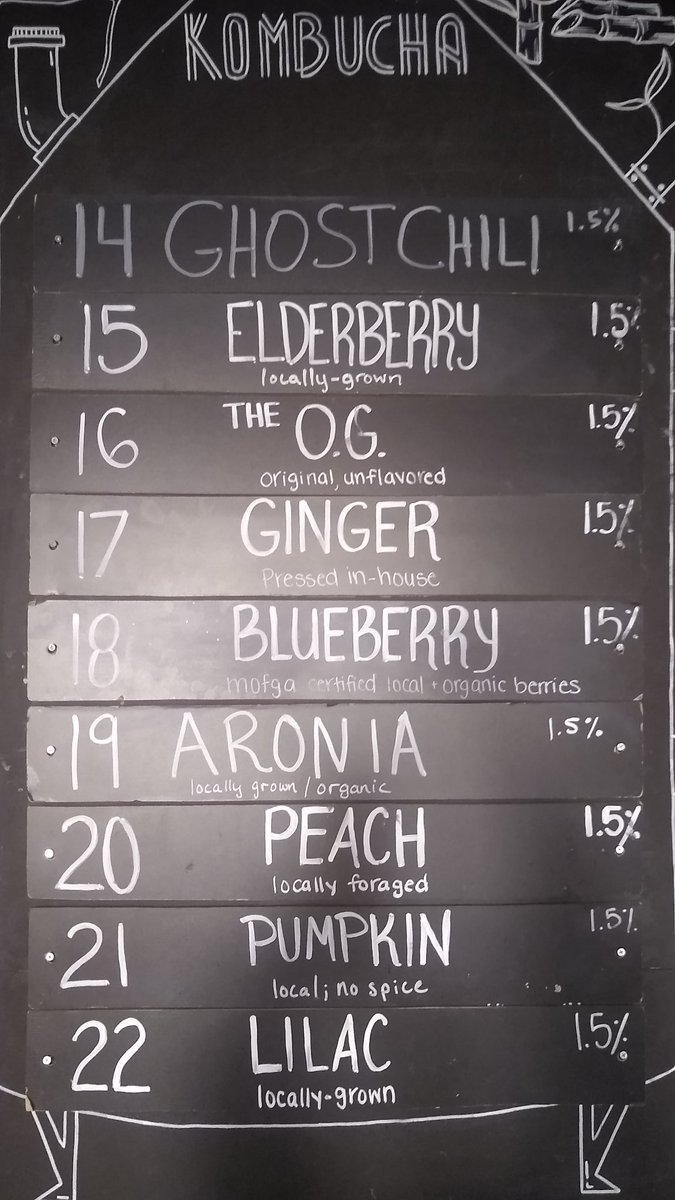 KOMBUCHA
14 GHOST CHILI 1.5%
15 ELDERBERRY 1.5%
locally-grown
16 THE O.G. 1.5%
original, unflavored
17 GINGER 1.5%
Pressed in-house
18 BLUEBERRY 1.5%
mofga certified local + organic berries
19 ARONIA 1.5%
locally grown / organic
20 PEACH 1.5%
locally foraged
21 PUMPKIN 1.5%
local; no spice
22 LILAC 1.5%
locally-grown